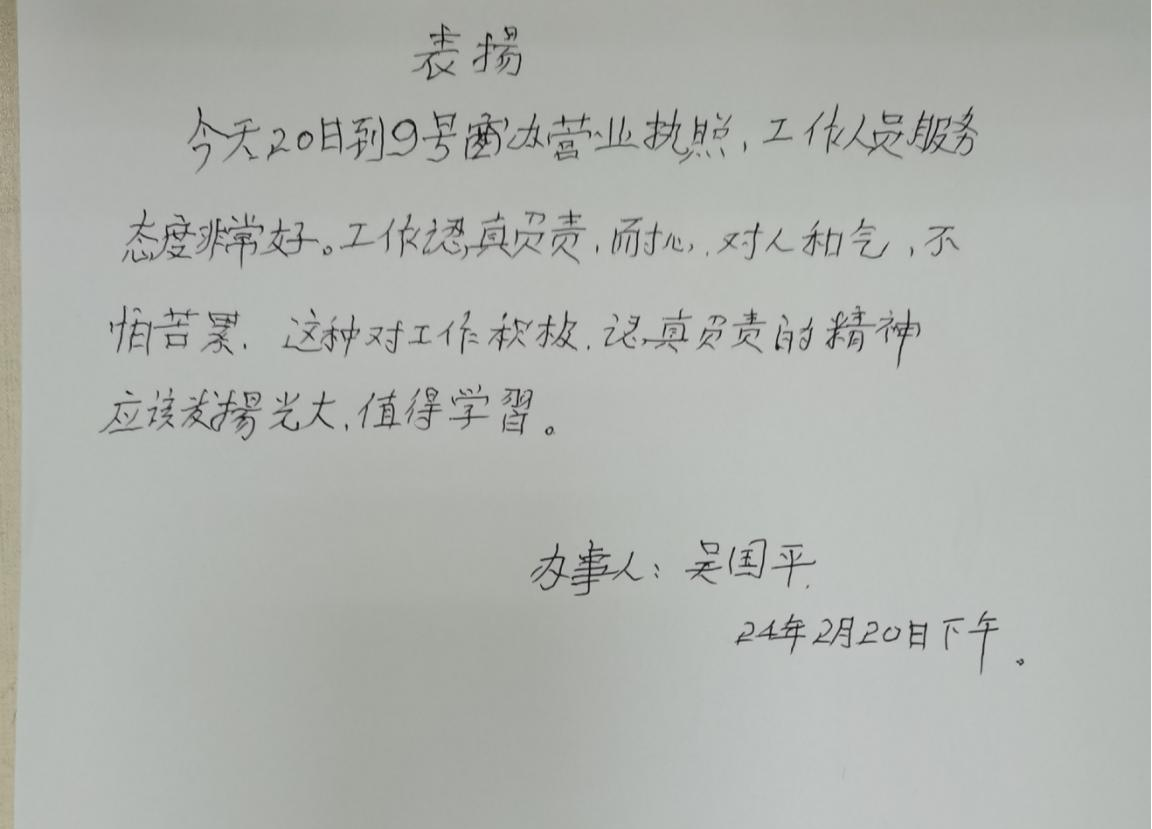 表揚
今天20日到9号窗办营业执照,工作人员服务
态度非常好。工作認真负责,而扗心,对人和气,不
怕苦累.这种对工作积极.認真负责的精神
应该发揚光大,值得学習。
办事人:吴国平.
24年2月20日下午。